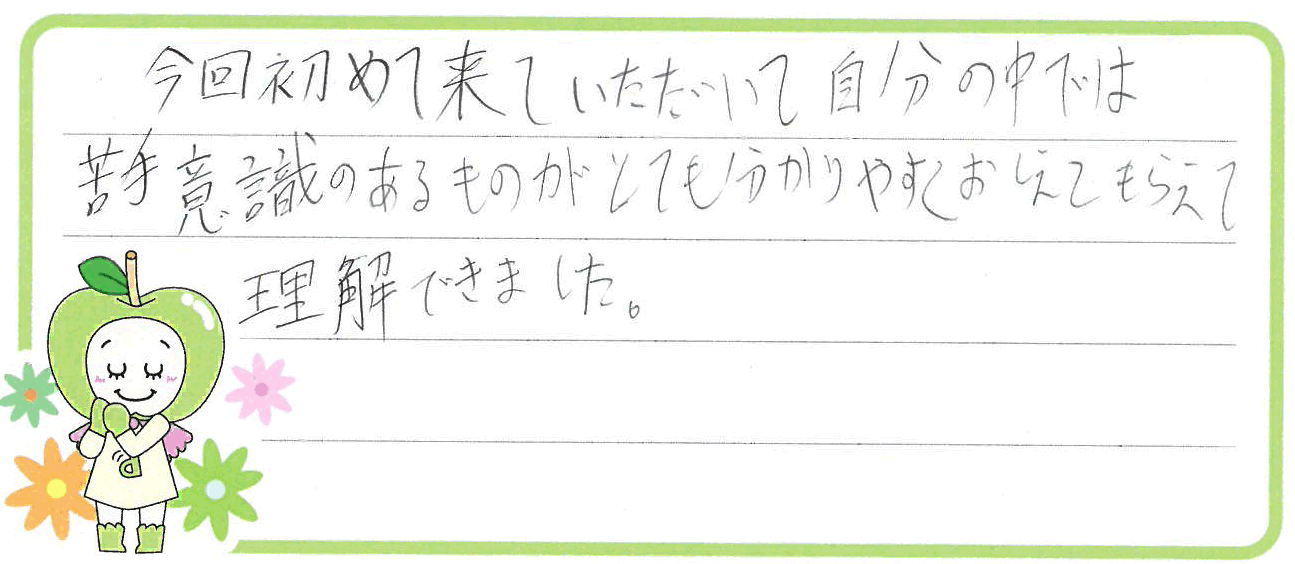 今回初めて来ていただいて自分の中では
苦手意識のあるものがとても分かりやすくおしえてもらえて
理解できました。